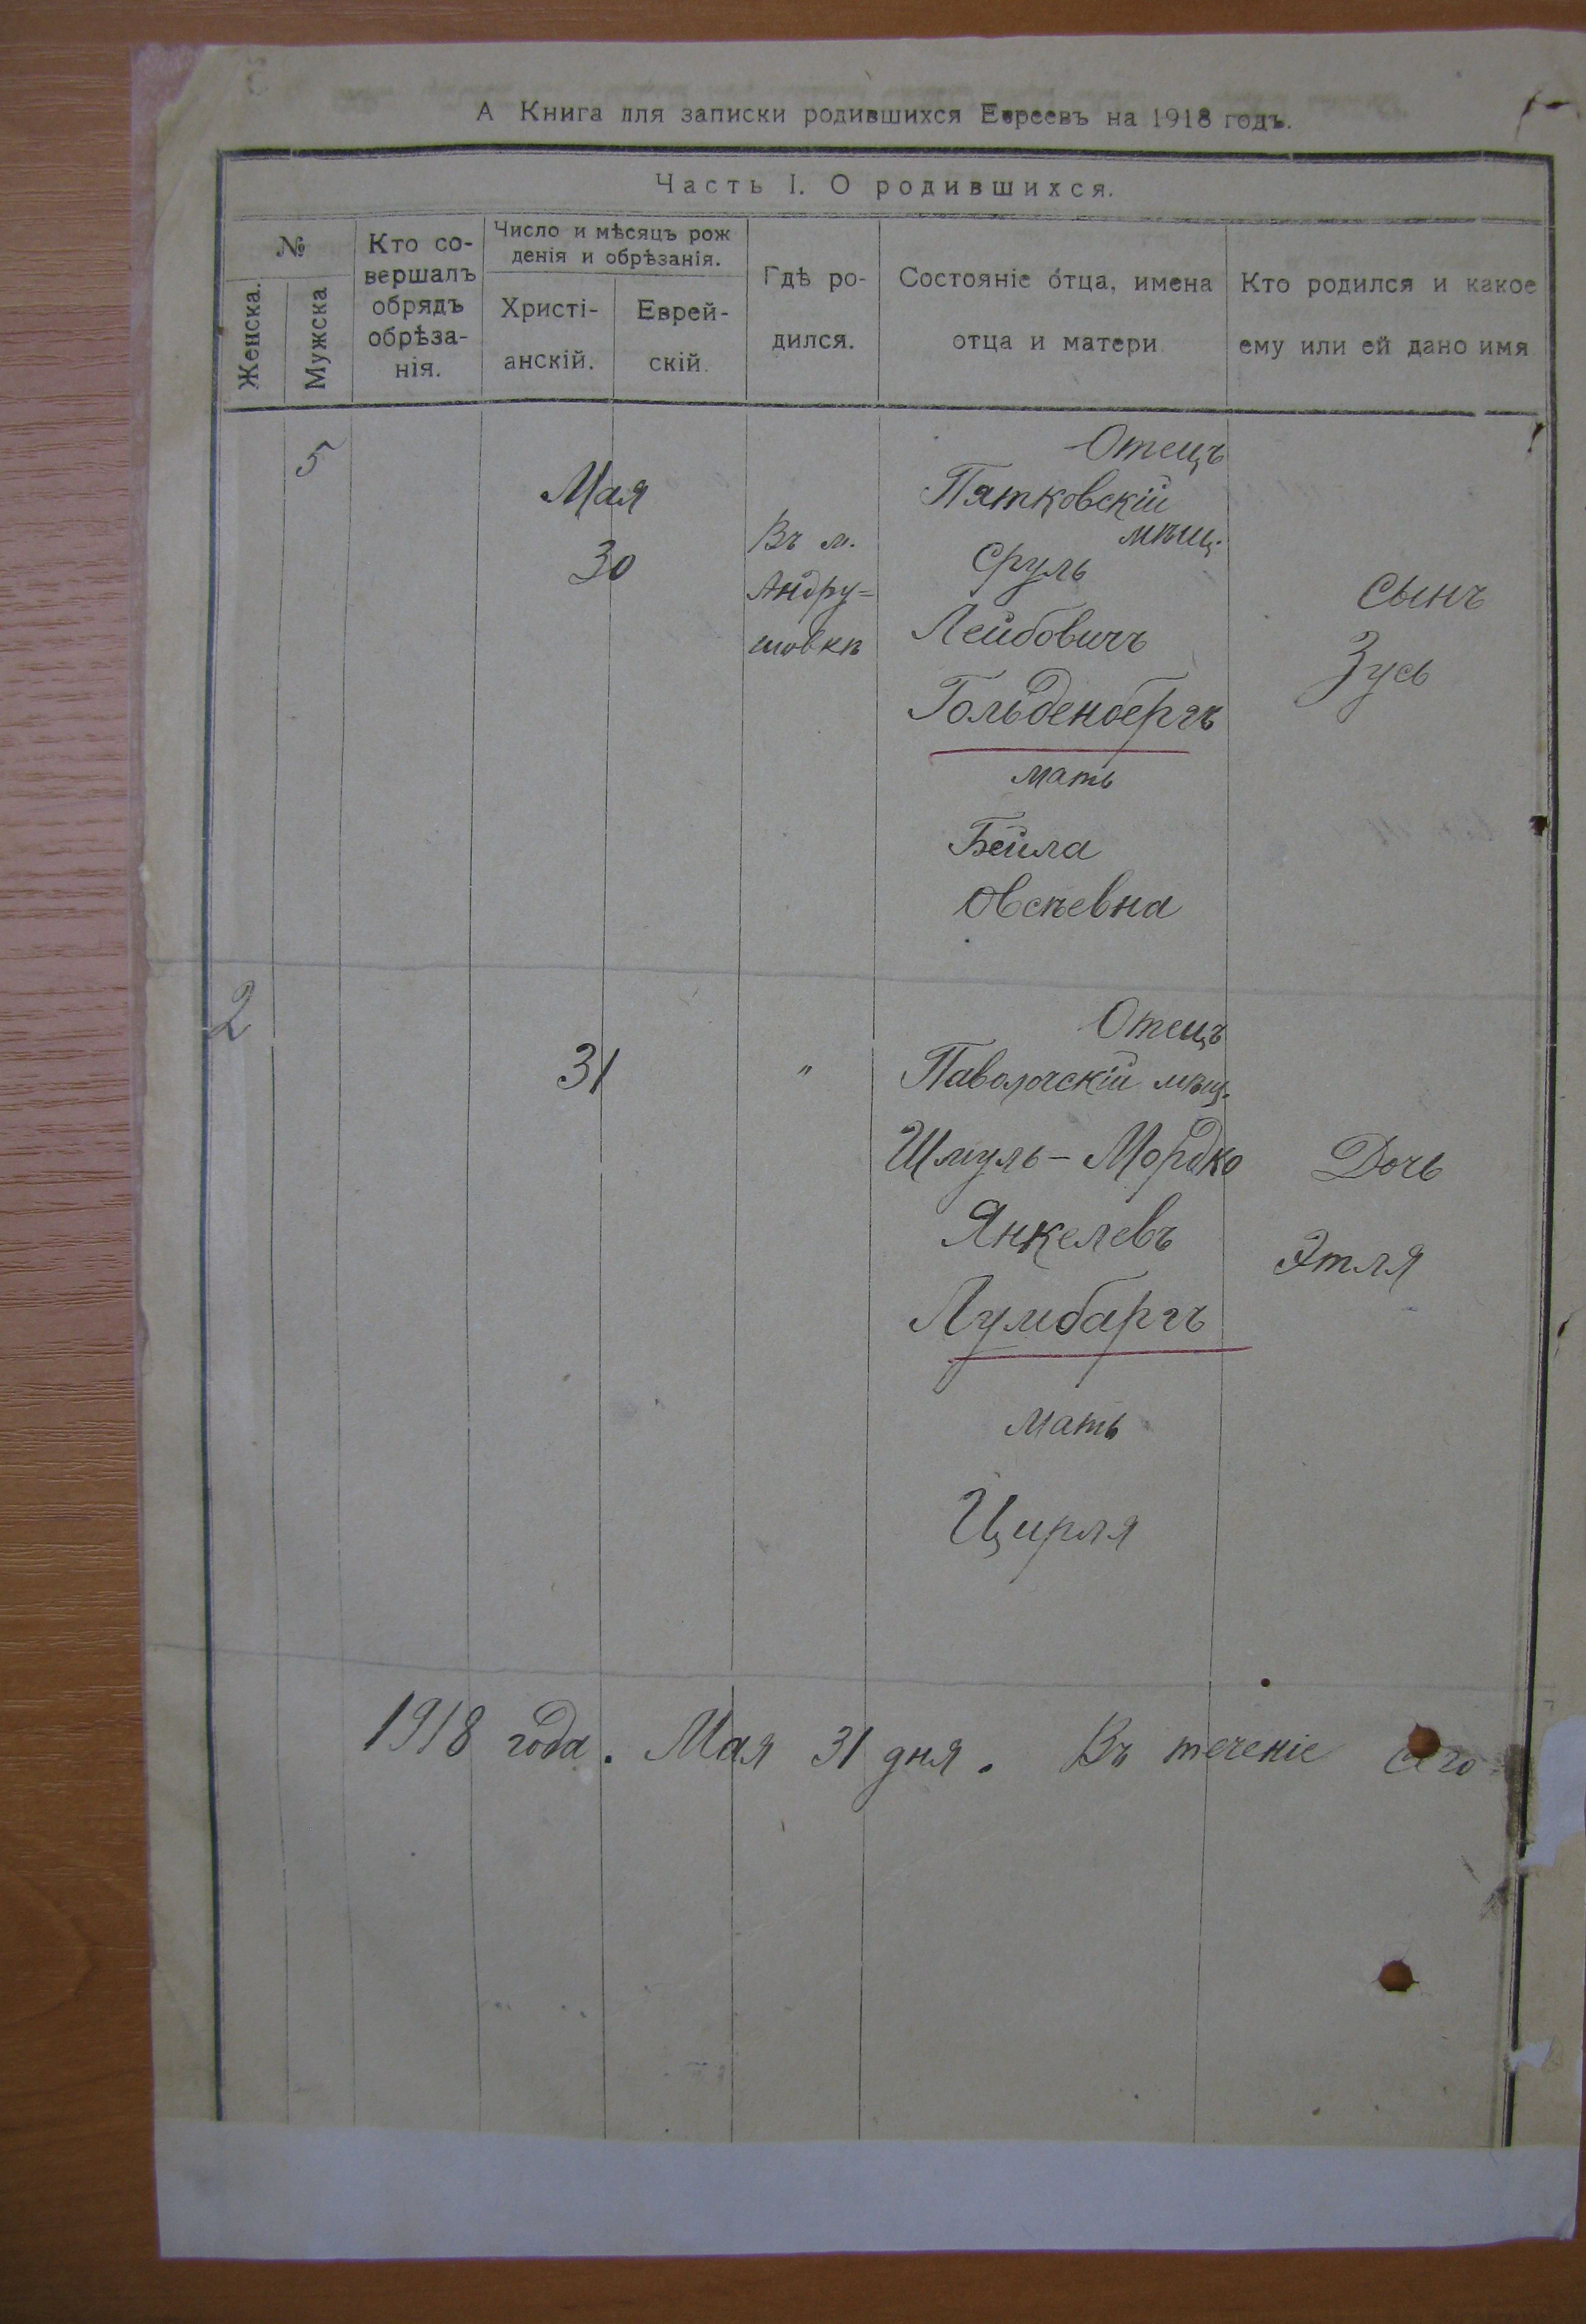 А Книга для записки родившихся Евреевъ на 1918 годъ.
Часть I. О родившихся.
№
Женска.
Мужска
Кто со-
вершалъ
обрядъ
обрѣза-
нія.
Число и мѣсяцъ рож
денія и обрѣзанія.
Христі-
анскій.
Еврей-
скій.
Гдѣ ро-
дился.
Состояніе отца, имена
отца и матери
Кто родился и какое
ему или ей дано имя
5
Мая
30
Въ м.
Андру=
шовкѣ
Отецъ
Пятковскій
мѣщ.
Сруль
Лейбовичъ
Гольденбергъ
мать
Бейла
Овсѣевна
Сынъ
Зусь
2
31
"
Отецъ
Паволочскій мѣщ.
Шмуль-Мордко
Янкелевъ
Лумбаргъ
мать
Цирля
Дочь
Этля
1918 года. Мая 31 дня. Въ теченіе